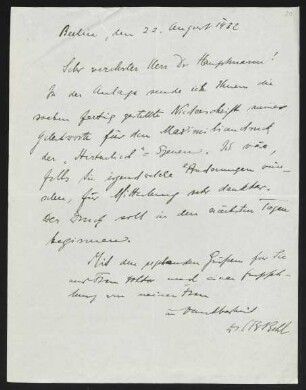 Berlin, den 22. August 1932
Sehr verehrter Herr Dr. Hauptmann!
In der Anlage sende ich Ihnen die
soeben fertig gestellte Niederschrift meines
Geleitworts für den Maximiliandruck
der „Hirtenlied"-Szenen. Ich wäre,
falls Sie irgendwelche Änderungen wün-
schen, für Mitteilung sehr dankbar.
Der Druck soll in den nächsten Tagen
beginnen.
Mit den ergebensten Grüßen für Sie
und Frau und einer Empfeh-
lung von meiner Frau
in Dankbarkeit